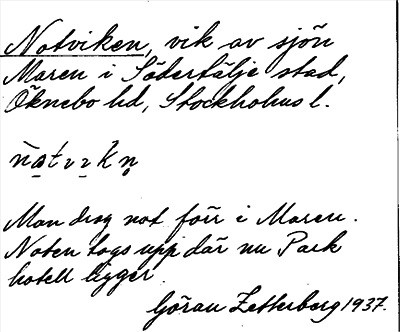 Notviken, vik av sjön
Maren i Södertälje stad,
Öknebo hd, Stockholms l.
Man drog not förr i Maren.
Noten togs upp där nu Park
hotell ligger.
Göran Zetterberg 1937.